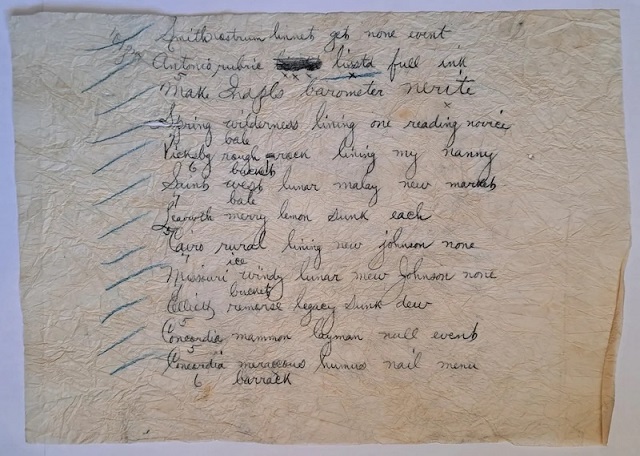 Smith nostrum linnet get none event
Antonio rubric lissta full ink
5
Make Indpls barometer nerite
x
Spring wilderness lining one reading novice
bale
Vicksbg rough rack lining my nanny
6 bucket
Saint west lunar malay new market
7 bale
Leavwth merry lemon sunk each
5
Cairo rural lining new johnson none
7 ice
Missouri windy lunar mew Johnson none
bucket
Elliott remorse legacy sunk dew
5
Concordia mammon layman null event
5
Concordia meraccous humus nail menu
6 barrack